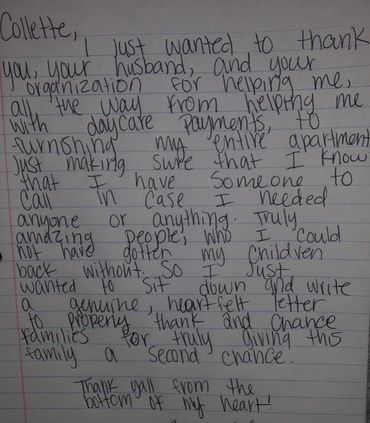 Collette,
I just wanted to thank
you, your husband, and your
organization for helping me,
all the way from helping me
with daycare payments, to
furnishing my entire apartment
just making sure that I know
that I have someone to
call in case I needed
anyone or anything. Truly
amazing people, who I could
not have gotten my children
back without. So I just
wanted to sit down and write
a genuine, heartfelt letter
to properly thank and Chance
families for truly giving this
family a second chance.
Thank yall from the
bottom of my heart!